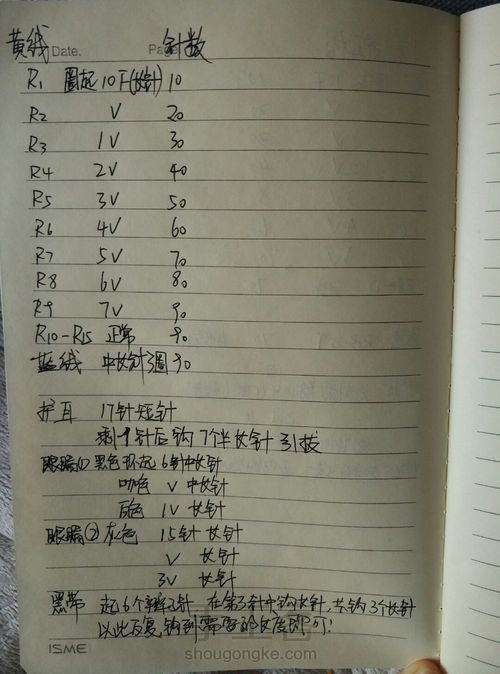 黄线 Date. Pa 针数
R1 圈起10F(长针) 10
R2 V 20
R3 1V 30
R4 2V 40
R5 3V 50
R6 4V 60
R7 5V 70
R8 6V 80
R9 7V 90
R10-R15 正常 90
蓝线 中长针3圈 90
护耳 17针短针
剩9针后钩7个半长针引拔
眼睛① 黑色环起6针中长针
咖色 V 中长针
白色 1V 长针
眼睛② 灰色 15针长针
V 长针
3V 长针
黑带 起6个辫子针,在第3针中钩长针,共钩3个长针
以此反复,钩到需要的长度即可!
ISME
shougongke.com